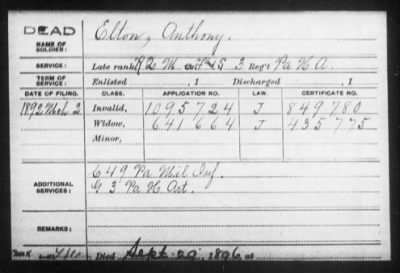 DEAD
NAME OF SOLDIER: Elton, Anthony.
SERVICE: Late rank R 2 M S 3 Reg't Pa H A.
TERM OF SERVICE: Enlisted , 1 Discharged , 1
DATE OF FILING. CLASS. APPLICATION NO. LAW. CERTIFICATE NO.
1892 Mch 2 Invalid, 1095724 J 849780
Widow, 641664 J 435775
Minor,
ADDITIONAL SERVICES: 649 Pa Mil Inf.
G 3 Pa H Art.
REMARKS:
Died Sept. 29, 1896, at